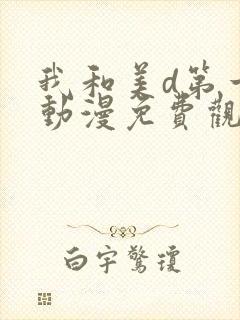 我和美d第一
動漫免費觀
白宇驚瓊